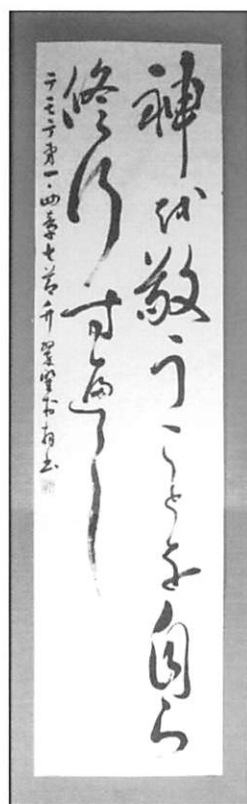 神を敬うことを自ら
修行すべし
テモテ第一・四章七節